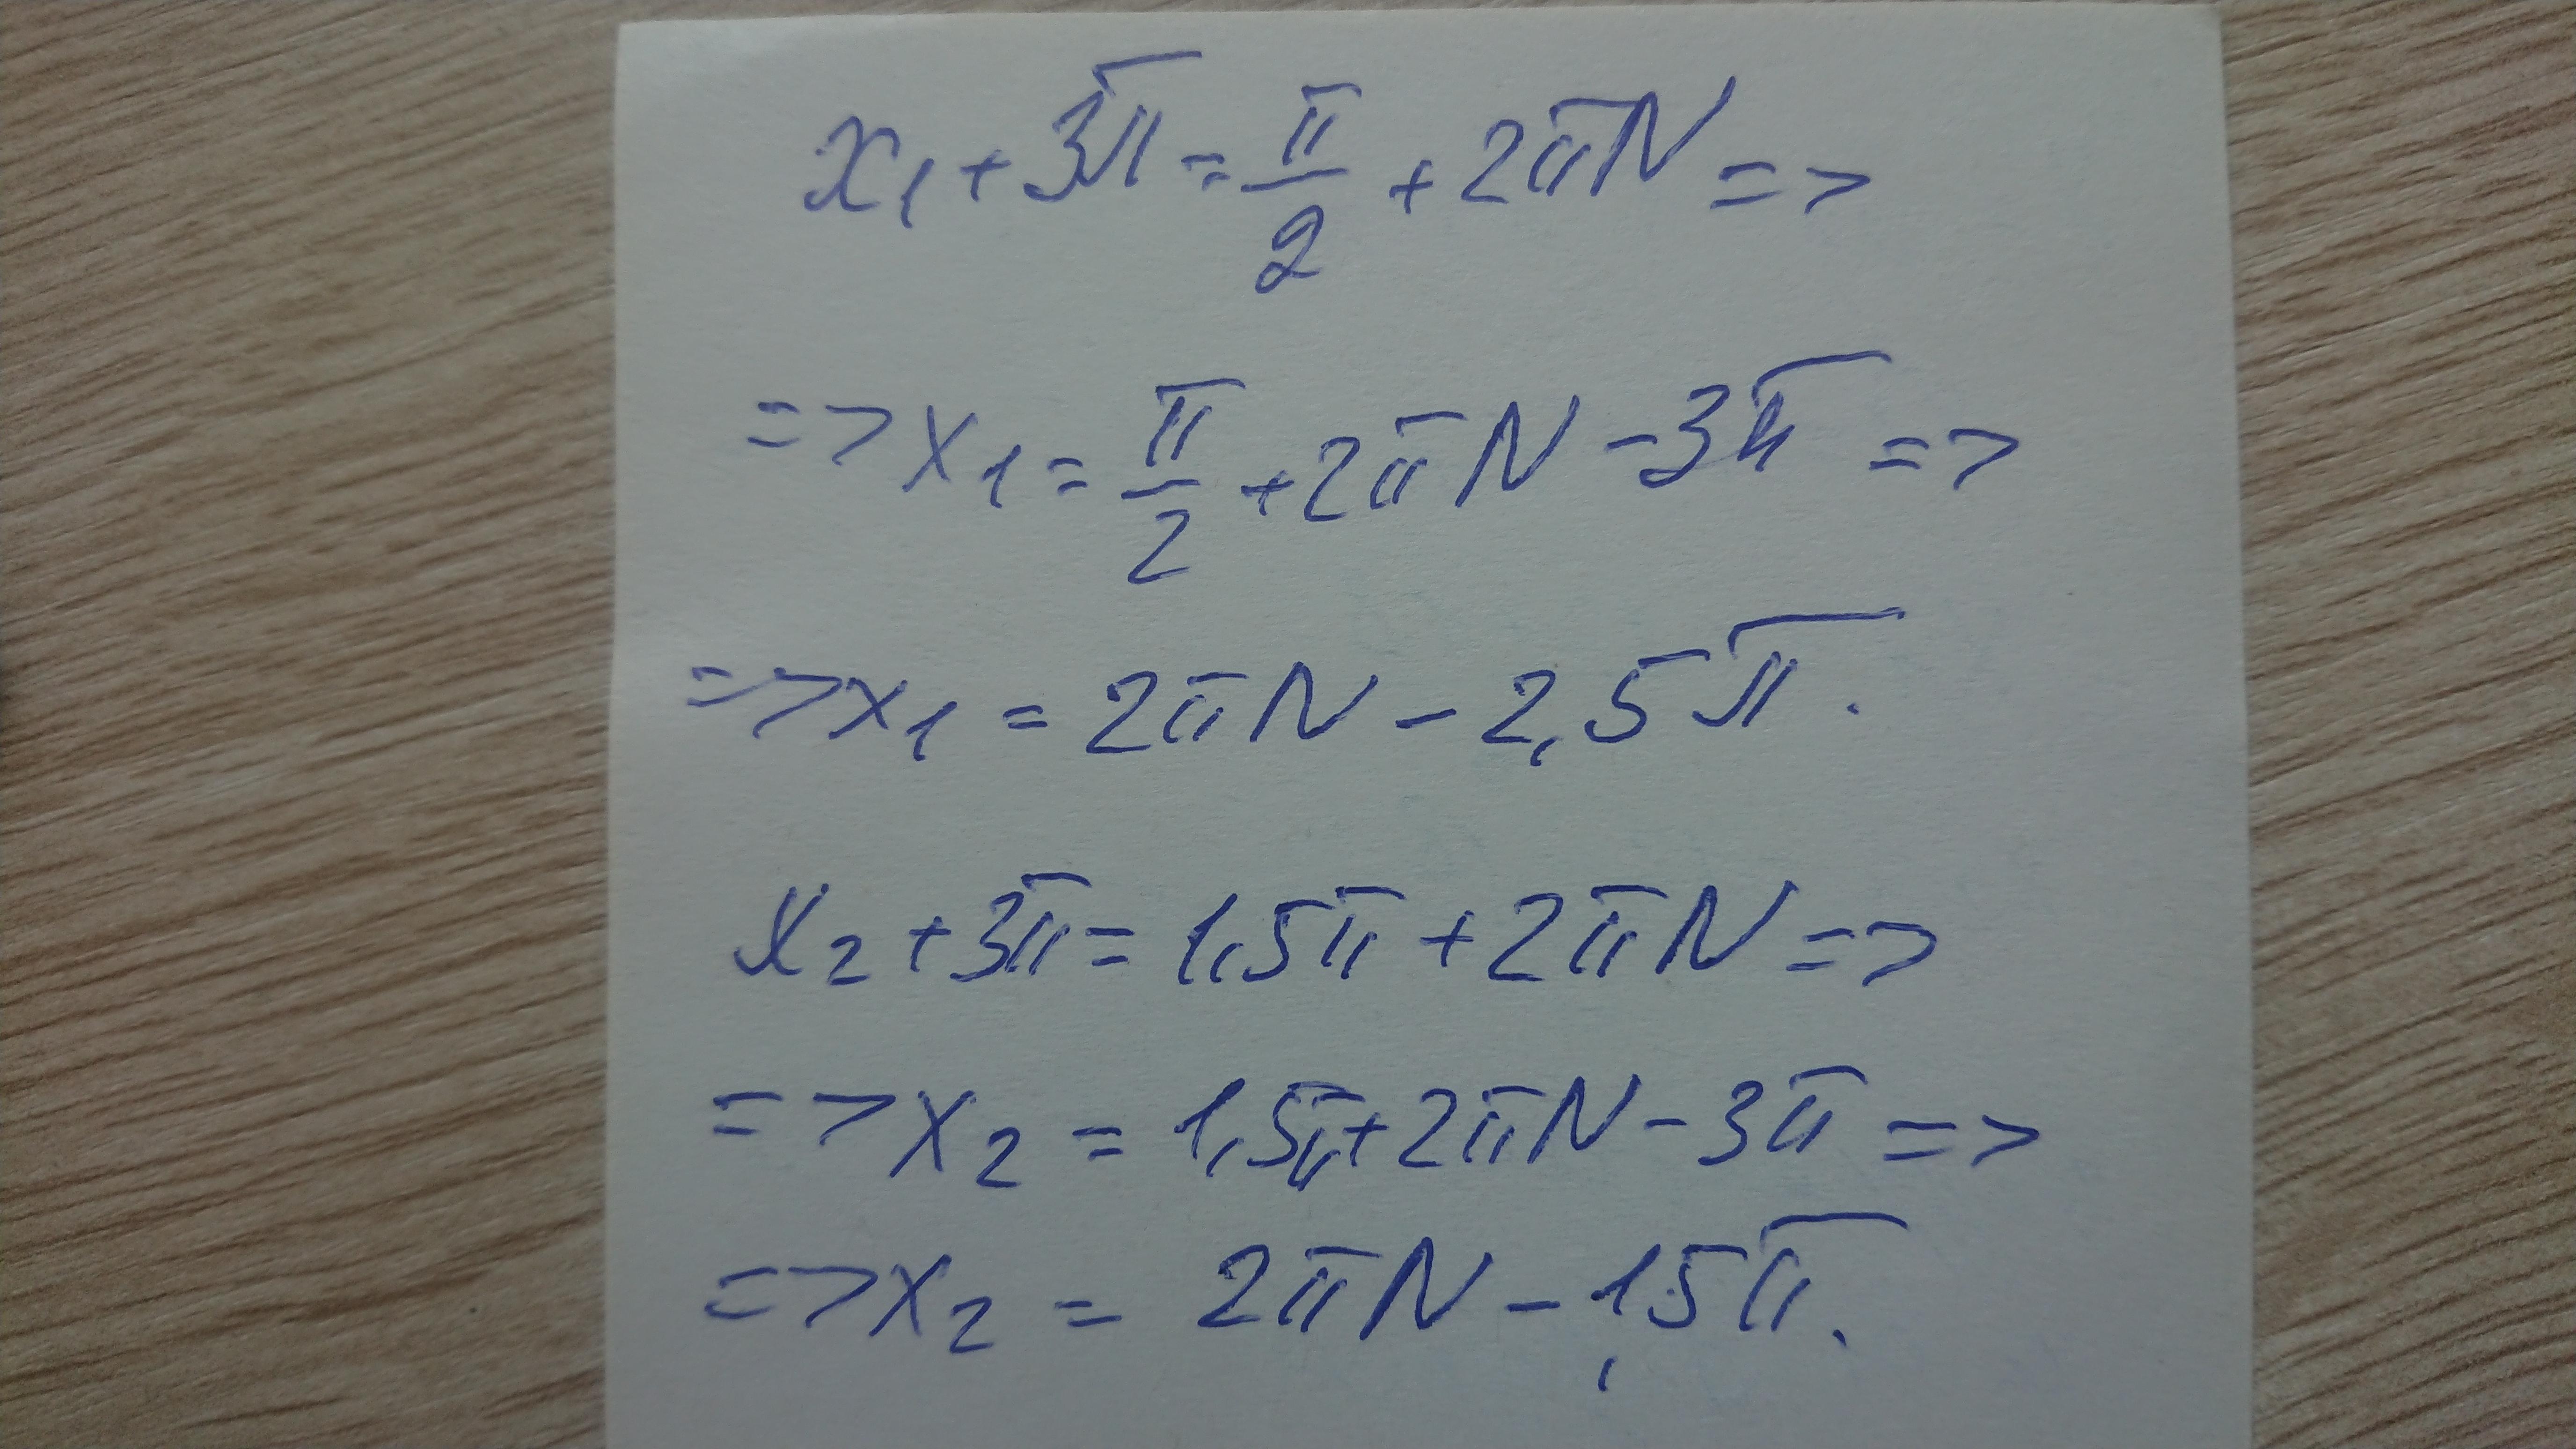 x₁ + 3π = π/2 + 2πN =>
=> x₁ = π/2 + 2πN - 3π =>
=> x₁ = 2πN - 2,5π.
x₂ + 3π = 1,5π + 2πN =>
=> x₂ = 1,5π + 2πN - 3π =>
=> x₂ = 2πN - 1,5π.